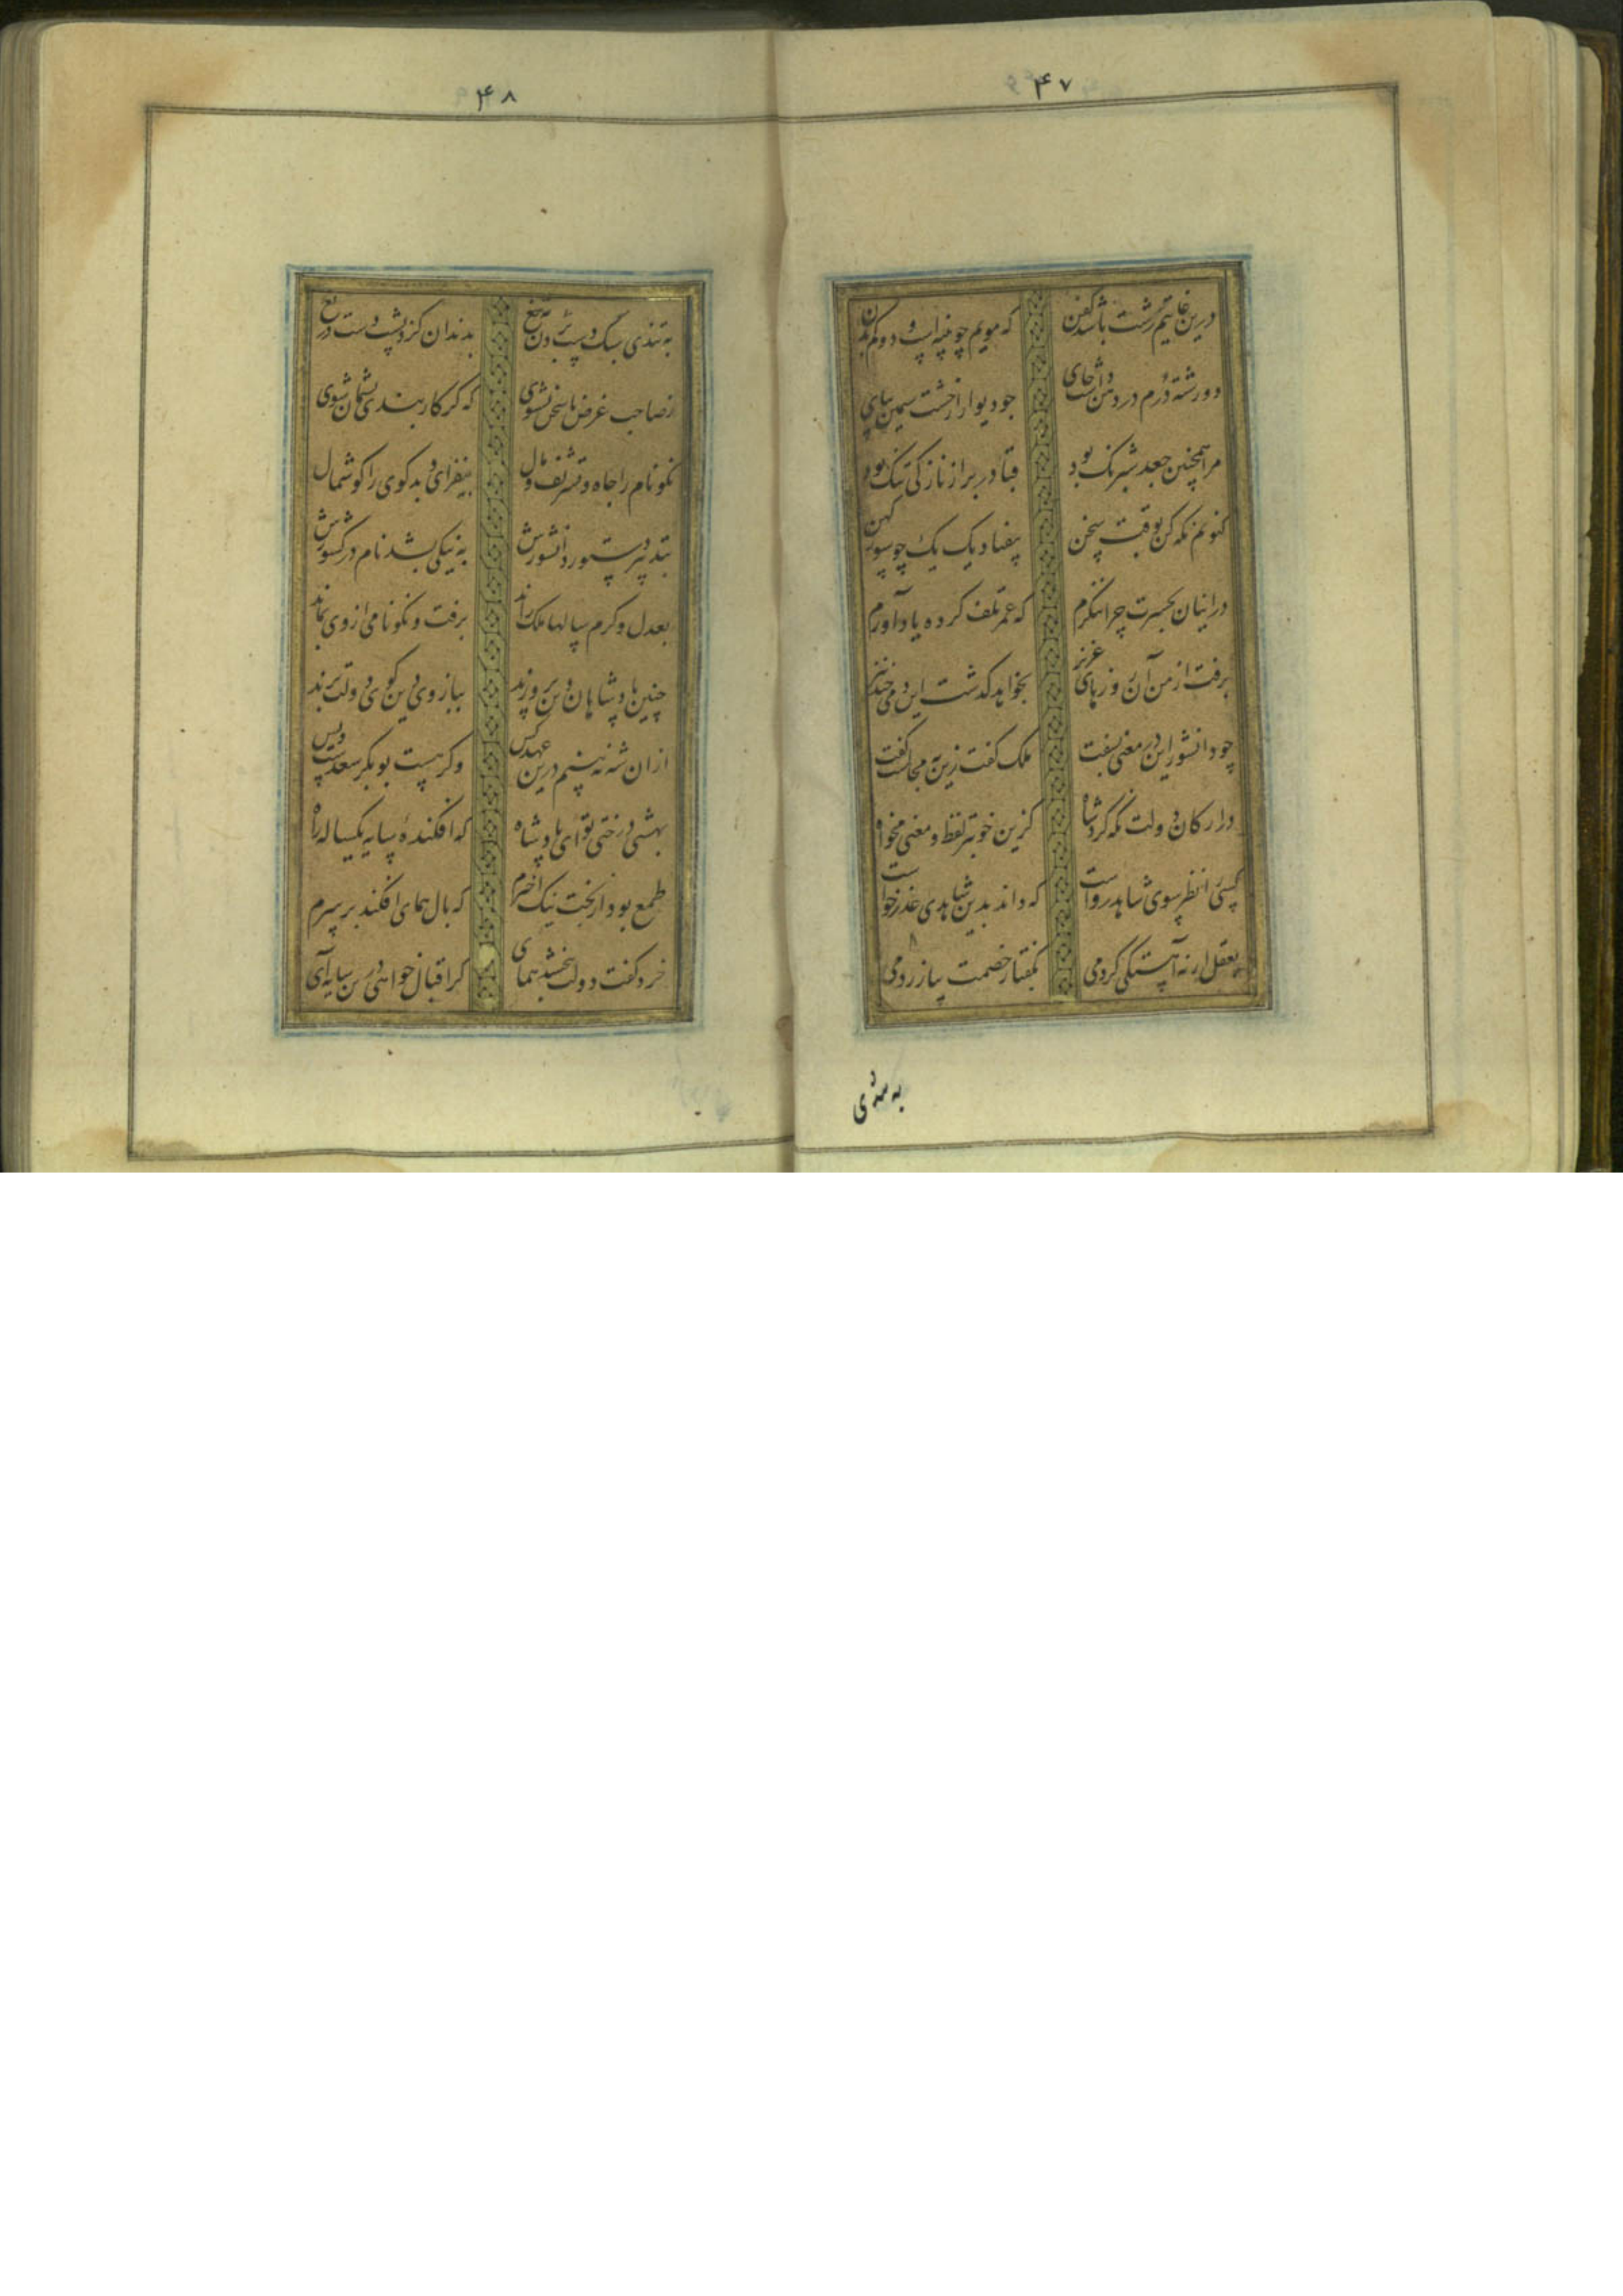 ۴۷
درین غایتم رشت باشد کفن که مویم چو پنبه است و دوکم بدن
دو رشته درم در دهن داشت جای چو دیوار از خشت سیمین بپای
مرا همچنین جعد شبرنک بود قبا در بر از نازکی تنک بود
کنونم نکه کن بوقت سخن بیفتاد یک یک چو سور کهن
در اینان بحسرت چرا ننکرم که عمر تلف کرده یاد آورم
برفت از من آن روزهای عزیز بخواهد کذشت این دمی چند نیز
چو دانشور این در معنی بسفت ملک کفت زین به محالست کفت
در ارکان دولت نکه کرد شاه کزین خوبتر لفظ و معنی مخواه
کسی را نظر سوی شاهد رواست که داند بدین شاهدی عذر خواست
بعقل ار نه آهستکی کردمی بکفتار خصمت بیازردمی
به تندی
۴۸
به تندی سبک دست بردن بتیغ بدندان کزد پشت دست دریغ
ز صاحب غرض تا سخن نشنوی که کر کار بندی پشمان شوی
نکو نام را جاه و تشریف و مال بیفزای و بد کوی را کوشمال
بتدبیر دستور دانشورش به نیکی بشد نام در کشورش
بعدل و کرم سالها ملک راند برفت و نکو نامی از وی بماند
چنین پادشاهان که دین پرورند ببازوی دین کوی دولت برند
ازان شه نه بینم درین عهد کس وکر هست بوبکر سعدست و بس
بهشتی درختی تو ای پادشاه که افکندهٔ سایه یکساله راه
طمع بود از بخت نیک اخترم که بال همای افکند بر سرم
خرد کفت دولت نبخشد همای کر اقبال خواهی درین سایه آی